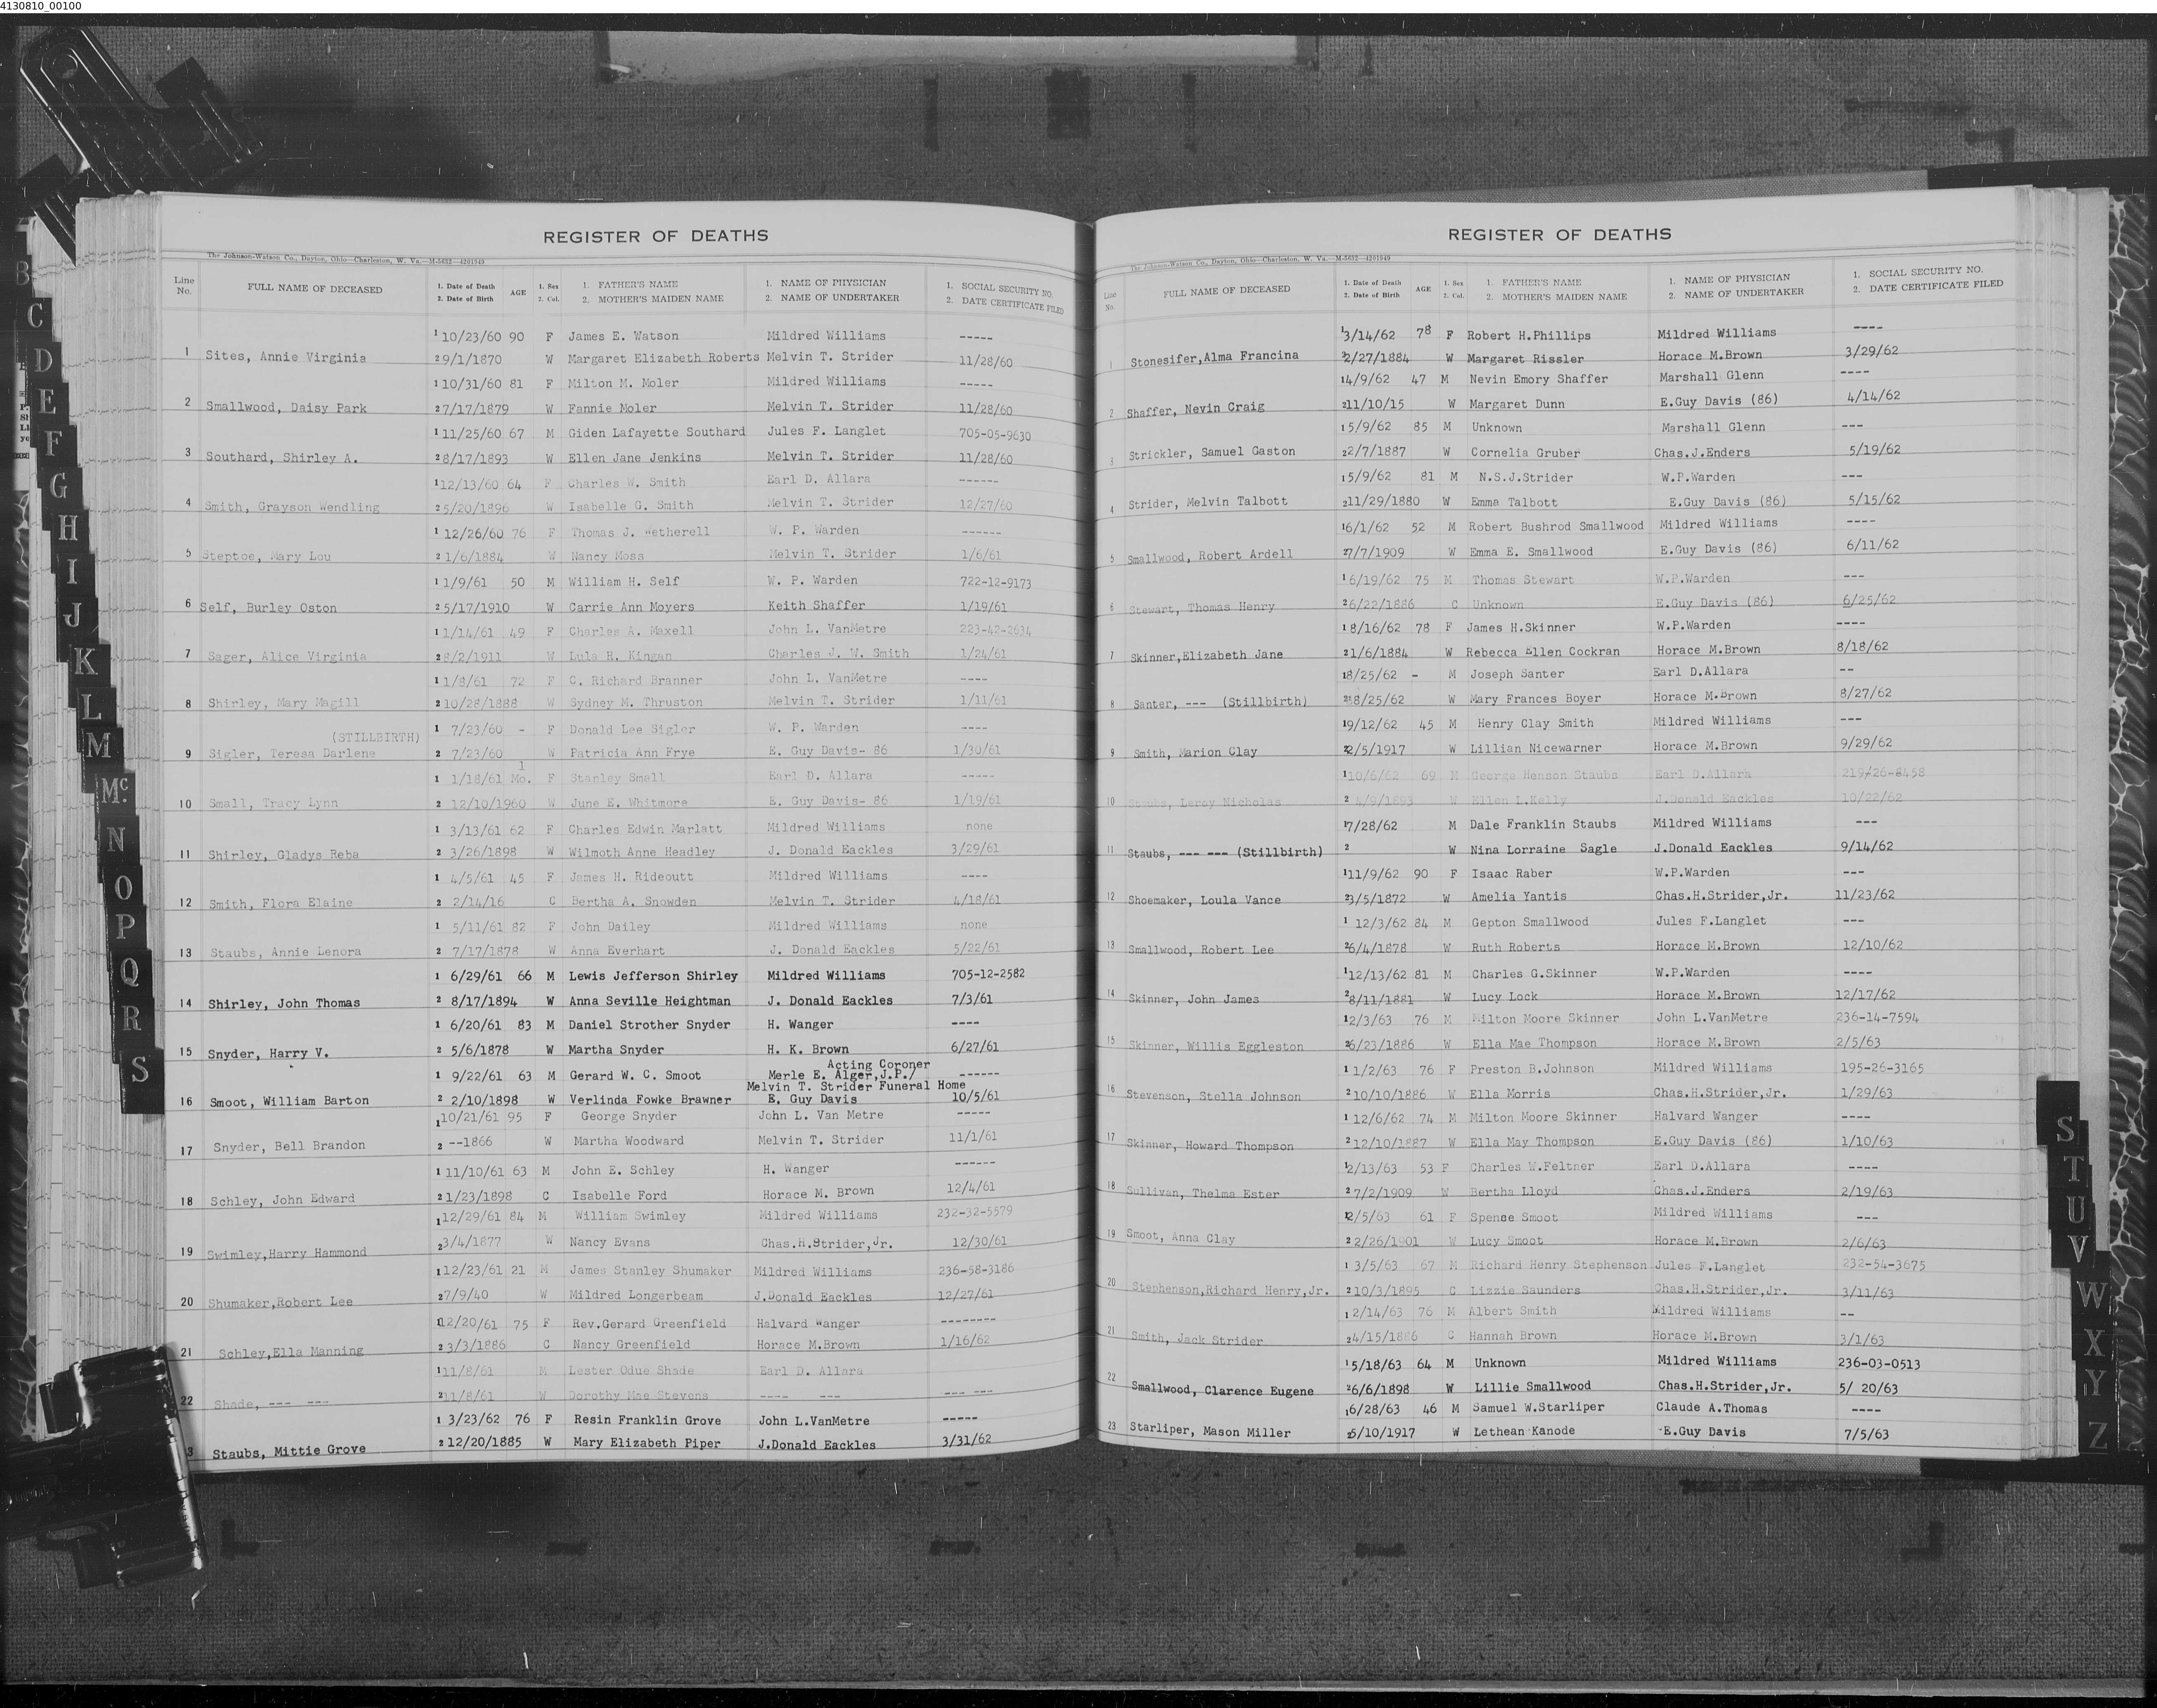 4130810_00100
REGISTER OF DEATHS
The Johnson-Watson Co., Dayton, Ohio—Charleston, W. Va.—M-5632—4201049
Line No. FULL NAME OF DECEASED 1. Date of Death 2. Date of Birth AGE 1. Sex 2. Col. 1. FATHER'S NAME 2. MOTHER'S MAIDEN NAME 1. NAME OF PHYSICIAN 2. NAME OF UNDERTAKER 1. SOCIAL SECURITY NO. 2. DATE CERTIFICATE FILED
1 10/23/60 90 F James E. Watson Mildred Williams -----
1 Sites, Annie Virginia 2 9/1/1870 W Margaret Elizabeth Roberts Melvin T. Strider 11/28/60
1 10/31/60 81 F Milton M. Moler Mildred Williams -----
2 Smallwood, Daisy Park 2 7/17/1879 W Fannie Moler Melvin T. Strider 11/28/60
1 11/25/60 67 M Giden Lafayette Southard Jules F. Langlet 705-05-9630
3 Southard, Shirley A. 2 8/17/1893 W Ellen Jane Jenkins Melvin T. Strider 11/28/60
1 12/13/60 64 F Charles W. Smith Earl D. Allara ------
4 Smith, Grayson Wendling 2 5/20/1896 W Isabelle G. Smith Melvin T. Strider 12/27/60
1 12/26/60 76 F Thomas J. Wetherell W. P. Warden ------
5 Steptoe, Mary Lou 2 1/6/1884 W Nancy Moss Melvin T. Strider 1/6/61
1 1/9/61 50 M William H. Self W. P. Warden 722-12-9173
6 Self, Burley Oston 2 5/17/1910 W Carrie Ann Moyers Keith Shaffer 1/19/61
1 1/14/61 49 F Charles A. Maxell John L. VanMetre 223-42-2634
7 Sager, Alice Virginia 2 8/2/1911 W Lula R. Kingan Charles J. W. Smith 1/24/61
1 1/8/61 72 F C. Richard Branner John L. VanMetre ----
8 Shirley, Mary Magill 2 10/28/1888 W Sydney M. Thruston Melvin T. Strider 1/11/61
(STILLBIRTH) 1 7/23/60 - F Donald Lee Sigler W. P. Warden ----
9 Sigler, Teresa Darlene 2 7/23/60 W Patricia Ann Frye E. Guy Davis- 86 1/30/61
1 1/18/61 1 Mo. F Stanley Small Earl D. Allara -----
10 Small, Tracy Lynn 2 12/10/1960 W June E. Whitmore E. Guy Davis- 86 1/19/61
1 3/13/61 62 F Charles Edwin Marlatt Mildred Williams none
11 Shirley, Gladys Reba 2 3/26/1898 W Wilmoth Anne Headley J. Donald Eackles 3/29/61
1 4/5/61 45 F James H. Rideoutt Mildred Williams ----
12 Smith, Flora Elaine 2 2/14/16 C Bertha A. Snowden Melvin T. Strider 4/18/61
1 5/11/61 82 F John Dailey Mildred Williams none
13 Staubs, Annie Lenora 2 7/17/1878 W Anna Everhart J. Donald Eackles 5/22/61
1 6/29/61 66 M Lewis Jefferson Shirley Mildred Williams 705-12-2582
14 Shirley, John Thomas 2 8/17/1894 W Anna Seville Heightman J. Donald Eackles 7/3/61
1 6/20/61 83 M Daniel Strother Snyder H. Wanger ----
15 Snyder, Harry V. 2 5/6/1878 W Martha Snyder H. K. Brown 6/27/61
Acting Coroner
1 9/22/61 63 M Gerard W. C. Smoot Merle E. Alger,J.P./ ------
Melvin T. Strider Funeral Home
16 Smoot, William Barton 2 2/10/1898 W Verlinda Fowke Brawner E. Guy Davis 10/5/61
1 10/21/61 95 F George Snyder John L. Van Metre -----
17 Snyder, Bell Brandon 2 --1866 W Martha Woodward Melvin T. Strider 11/1/61
1 11/10/61 63 M John E. Schley H. Wanger ------
18 Schley, John Edward 2 1/23/1898 C Isabelle Ford Horace M. Brown 12/4/61
1 12/29/61 84 M William Swimley Mildred Williams 232-32-5579
19 Swimley,Harry Hammond 2 3/4/1877 W Nancy Evans Chas.H.Strider,Jr. 12/30/61
1 12/23/61 21 M James Stanley Shumaker Mildred Williams 236-58-3186
20 Shumaker,Robert Lee 2 7/9/40 W Mildred Longerbeam J.Donald Eackles 12/27/61
1 12/20/61 75 F Rev.Gerard Greenfield Halvard Wanger --------
21 Schley,Ella Manning 2 3/3/1886 C Nancy Greenfield Horace M.Brown 1/16/62
1 11/8/61 M Lester Odue Shade Earl D. Allara
22 Shade, --- --- 2 11/8/61 W Dorothy Mae Stevens ---- --- --- ---
1 3/23/62 76 F Resin Franklin Grove John L.VanMetre -----
3 Staubs, Mittie Grove 2 12/20/1885 W Mary Elizabeth Piper J.Donald Eackles 3/31/62
REGISTER OF DEATHS
The Johnson-Watson Co., Dayton, Ohio—Charleston, W. Va.—M-5632—4201049
Line No. FULL NAME OF DECEASED 1. Date of Death 2. Date of Birth AGE 1. Sex 2. Col. 1. FATHER'S NAME 2. MOTHER'S MAIDEN NAME 1. NAME OF PHYSICIAN 2. NAME OF UNDERTAKER 1. SOCIAL SECURITY NO. 2. DATE CERTIFICATE FILED
1 3/14/62 78 F Robert H.Phillips Mildred Williams ----
1 Stonesifer,Alma Francina 2 2/27/1884 W Margaret Rissler Horace M.Brown 3/29/62
1 4/9/62 47 M Nevin Emory Shaffer Marshall Glenn ----
2 Shaffer, Nevin Craig 2 11/10/15 W Margaret Dunn E.Guy Davis (86) 4/14/62
1 5/9/62 85 M Unknown Marshall Glenn ---
3 Strickler, Samuel Gaston 2 2/7/1887 W Cornelia Gruber Chas.J.Enders 5/19/62
1 5/9/62 81 M N.S.J.Strider W.P.Warden ---
4 Strider, Melvin Talbott 2 11/29/1880 W Emma Talbott E.Guy Davis (86) 5/15/62
1 6/1/62 52 M Robert Bushrod Smallwood Mildred Williams ----
5 Smallwood, Robert Ardell 2 7/7/1909 W Emma E. Smallwood E.Guy Davis (86) 6/11/62
1 6/19/62 75 M Thomas Stewart W.P.Warden ---
6 Stewart, Thomas Henry 2 6/22/1886 C Unknown E.Guy Davis (86) 6/25/62
1 8/16/62 78 F James H.Skinner W.P.Warden ----
7 Skinner,Elizabeth Jane 2 1/6/1884 W Rebecca Ellen Cockran Horace M.Brown 8/18/62
1 8/25/62 - M Joseph Santer Earl D.Allara --
8 Santer, --- (Stillbirth) 2 8/25/62 W Mary Frances Boyer Horace M.Brown 8/27/62
1 9/12/62 45 M Henry Clay Smith Mildred Williams ---
9 Smith, Marion Clay 2 2/5/1917 W Lillian Nicewarner Horace M.Brown 9/29/62
1 10/6/62 69 M George Henson Staubs Earl D.Allara 219-26-8458
10 Staubs, Leroy Nicholas 2 4/9/1893 W Ellen L.Kelly J.Donald Eackles 10/22/62
1 7/28/62 M Dale Franklin Staubs Mildred Williams ---
11 Staubs, --- --- (Stillbirth) 2 W Nina Lorraine Sagle J.Donald Eackles 9/14/62
1 11/9/62 90 F Isaac Raber W.P.Warden ---
12 Shoemaker, Loula Vance 2 3/5/1872 W Amelia Yantis Chas.H.Strider,Jr. 11/23/62
1 12/3/62 84 M Gepton Smallwood Jules F.Langlet ---
13 Smallwood, Robert Lee 2 6/4/1878 W Ruth Roberts Horace M.Brown 12/10/62
1 12/13/62 81 M Charles G.Skinner W.P.Warden ----
14 Skinner, John James 2 8/11/1881 W Lucy Lock Horace M.Brown 12/17/62
1 2/3/63 76 M Milton Moore Skinner John L.VanMetre 236-14-7594
15 Skinner, Willis Eggleston 2 6/23/1886 W Ella Mae Thompson Horace M.Brown 2/5/63
1 1/2/63 76 F Preston B.Johnson Mildred Williams 195-26-3165
16 Stevenson, Stella Johnson 2 10/10/1886 W Ella Morris Chas.H.Strider,Jr. 1/29/63
1 12/6/62 74 M Milton Moore Skinner Halvard Wanger ----
17 Skinner, Howard Thompson 2 12/10/1887 W Ella May Thompson E.Guy Davis (86) 1/10/63
1 2/13/63 53 F Charles W.Feltner Earl D.Allara ----
18 Sullivan, Thelma Ester 2 7/2/1909 W Bertha Lloyd Chas.J.Enders 2/19/63
1 2/5/63 61 F Spense Smoot Mildred Williams ---
19 Smoot, Anna Clay 2 2/26/1901 W Lucy Smoot Horace M.Brown 2/6/63
1 3/5/63 67 M Richard Henry Stephenson Jules F.Langlet 232-54-3675
20 Stephenson,Richard Henry,Jr. 2 10/3/1895 C Lizzie Saunders Chas.H.Strider,Jr. 3/11/63
1 2/14/63 76 M Albert Smith Mildred Williams --
21 Smith, Jack Strider 2 4/15/1886 C Hannah Brown Horace M.Brown 3/1/63
1 5/18/63 64 M Unknown Mildred Williams 236-03-0513
22 Smallwood, Clarence Eugene 2 6/6/1898 W Lillie Smallwood Chas.H.Strider,Jr. 5/ 20/63
1 6/28/63 46 M Samuel W.Starliper Claude A.Thomas ----
23 Starliper, Mason Miller 2 5/10/1917 W Lethean Kanode E.Guy Davis 7/5/63
B
C
D
E
F
G
H
I
J
K
L
M
Mc
N
O
P
Q
R
S
S
T
U
V
W
X
Y
Z